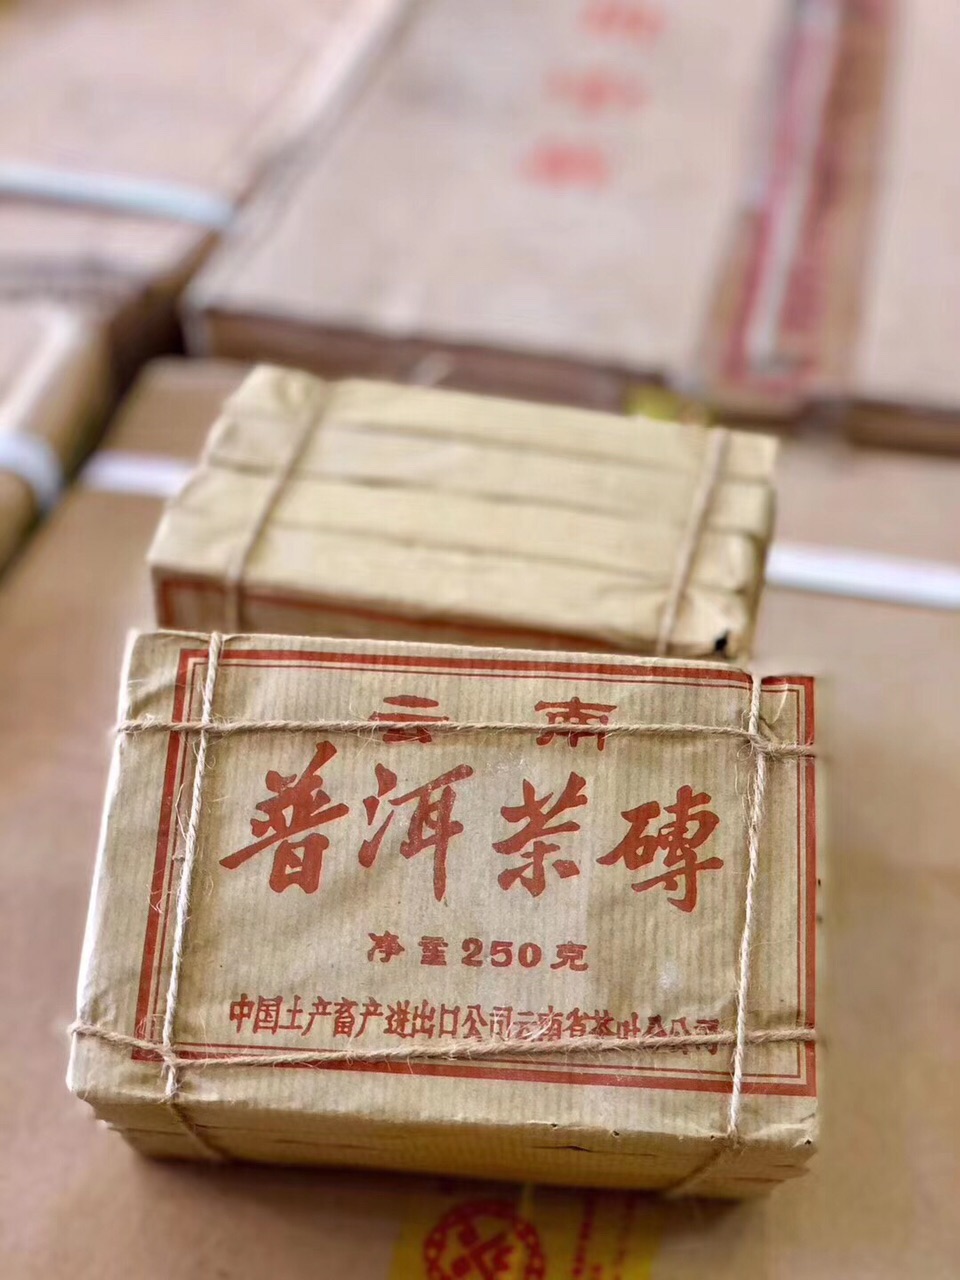 云南
普洱茶磚
净重250克
中国土产畜产进出口公司云南省茶叶分公司